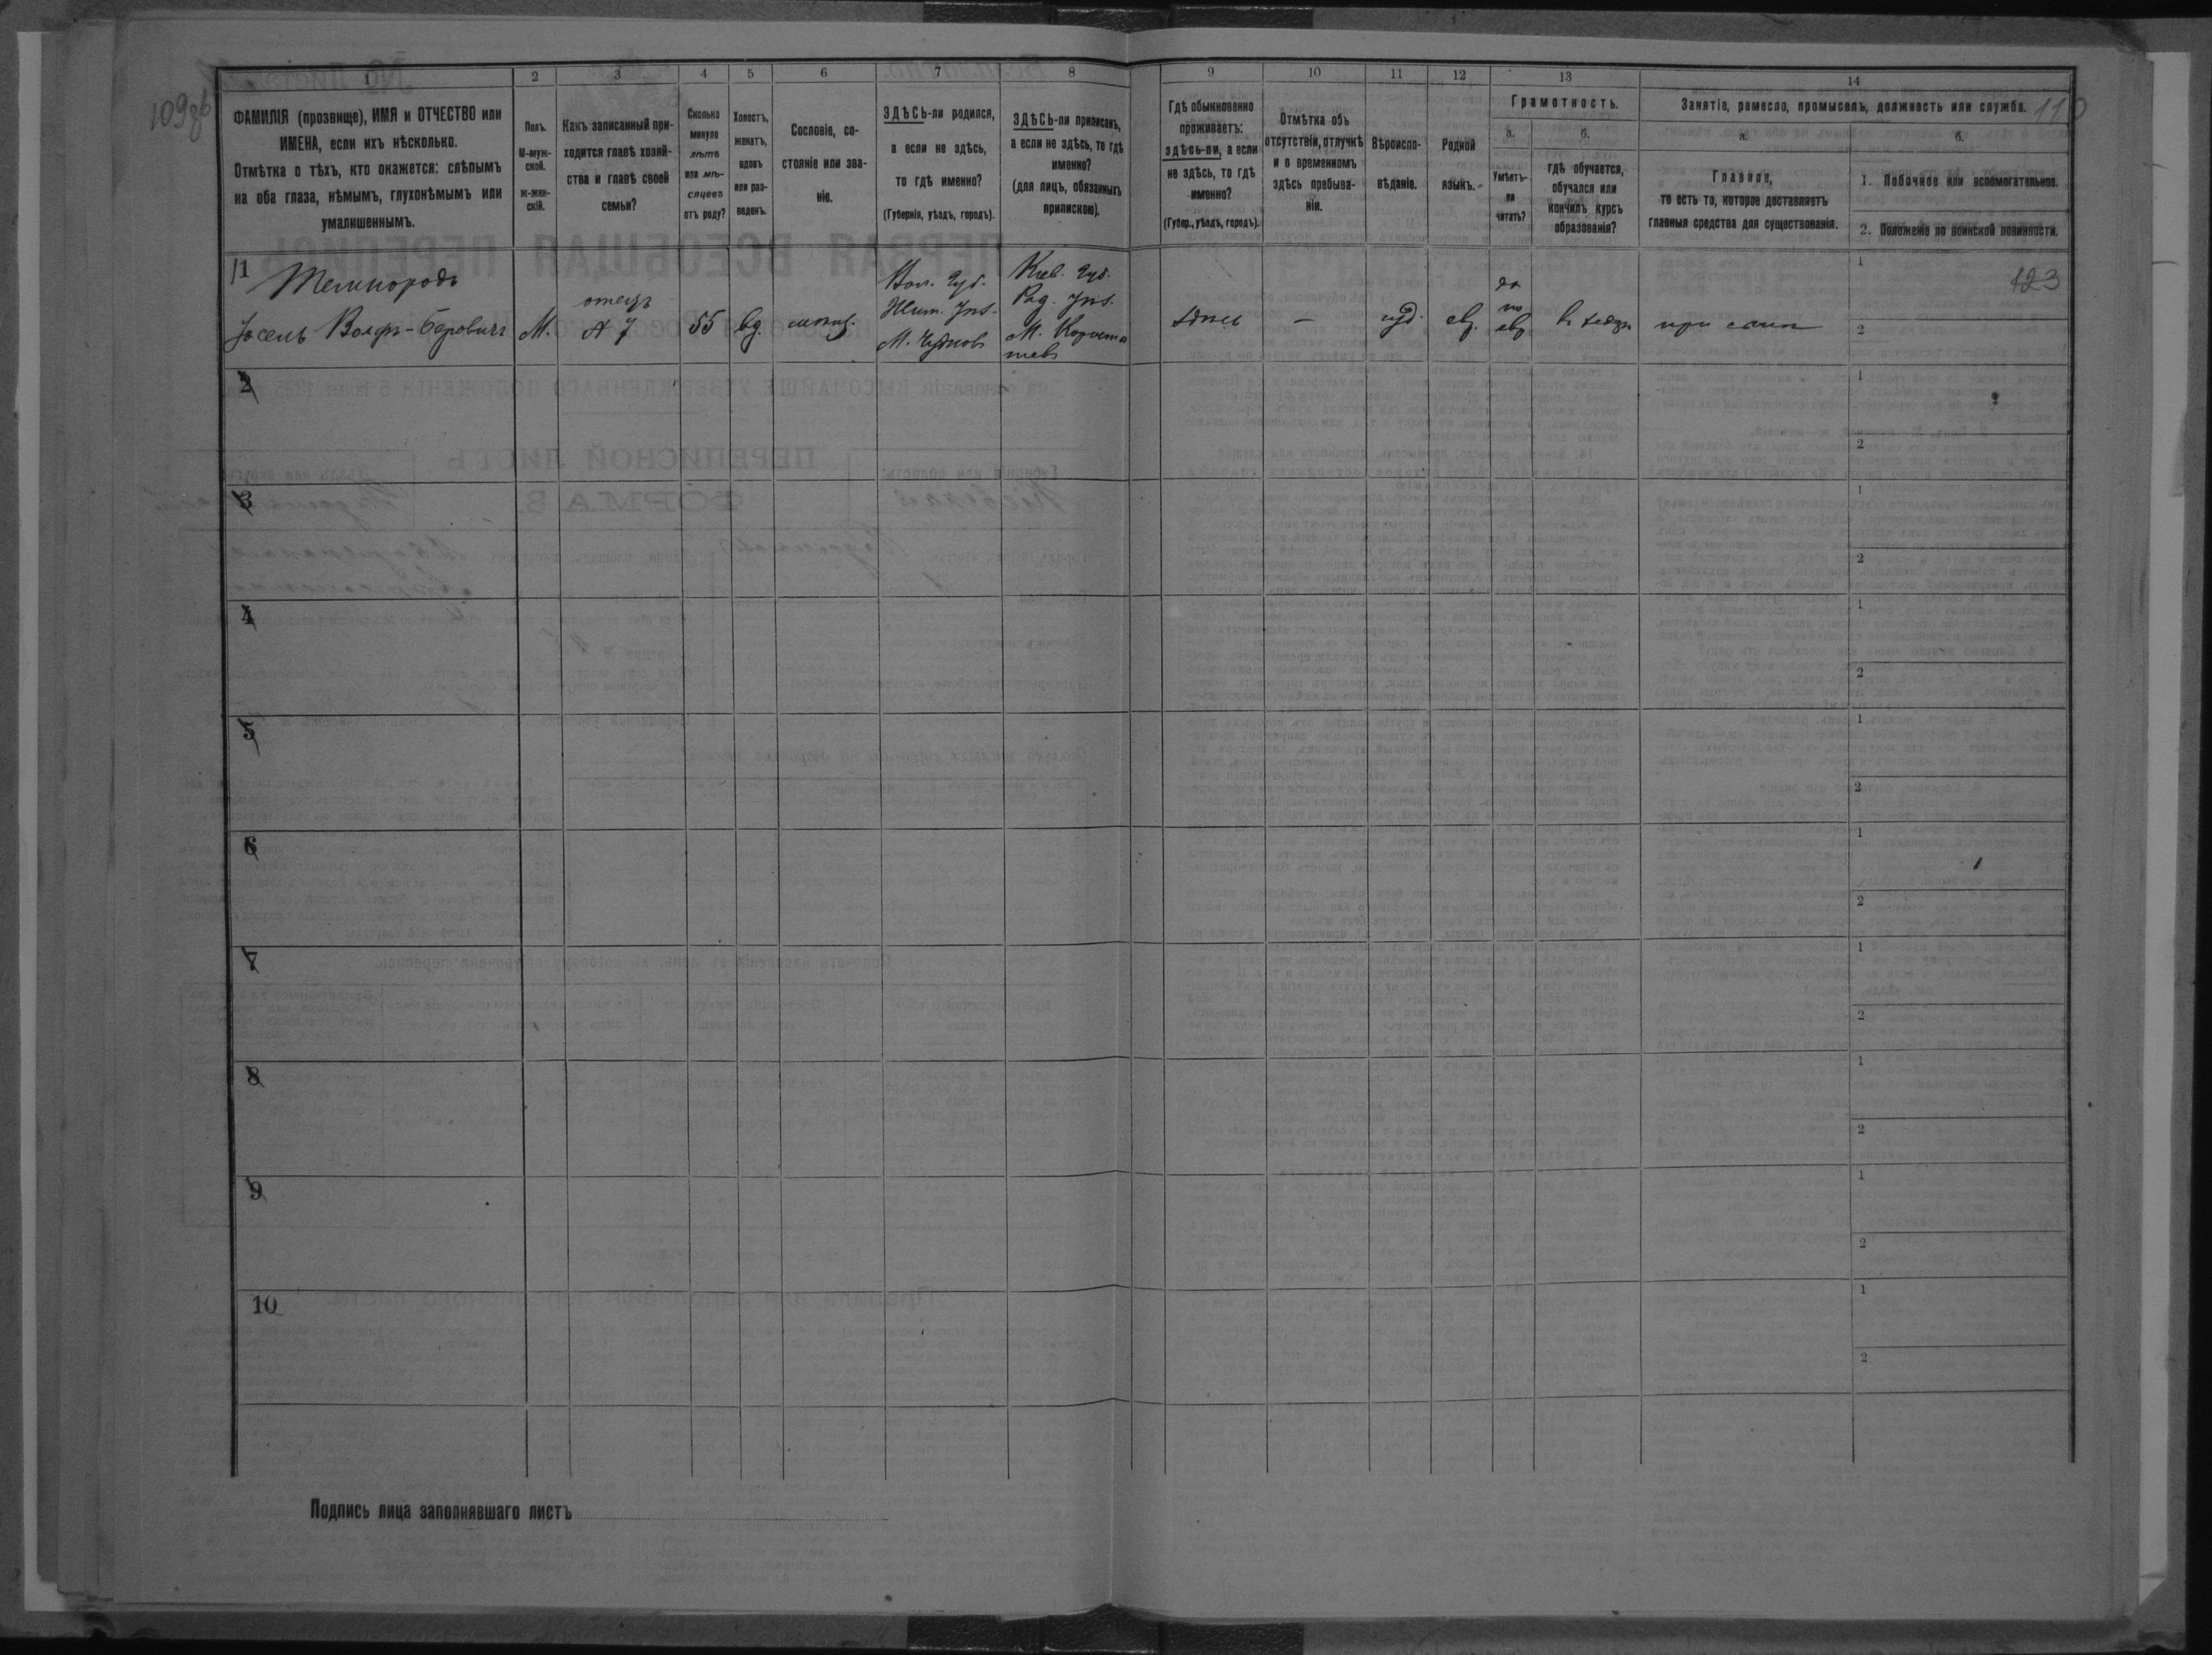 109об
110
123
1
2
3
4
5
6
7
8
9
10
11
12
13
14
ФАМИЛІЯ (прозвище), ИМЯ и ОТЧЕСТВО или
ИМЕНА, если ихъ нѣсколько.
Отмѣтка о тѣхъ, кто окажется: слѣпымъ
на оба глаза, нѣмымъ, глухонѣмымъ или
умалишеннымъ.
Полъ.
М-муж-
ской.
Ж-жен-
скій.
Какъ записанный при-
ходится главѣ хозяй-
ства и главѣ своей
семьи?
Сколько
минуло
лѣтъ
или мѣ-
сяцевъ
отъ роду?
Холостъ,
женатъ,
вдовъ
или раз-
веденъ.
Сословіе, со-
стояніе или зва-
ніе.
ЗДѢСЬ-ли родился,
а если не здѣсь,
то гдѣ именно?
(Губернія, уѣздъ, городъ).
ЗДѢСЬ-ли приписанъ,
а если не здѣсь, то гдѣ
именно?
(для лицъ, обязанныхъ
припискою).
Гдѣ обыкновенно
проживаетъ:
здѣсь-ли, а если
не здѣсь, то гдѣ
именно?
(Губер., уѣздъ, городъ).
Отмѣтка объ
отсутствіи, отлучкѣ
и о временномъ
здѣсь пребыва-
ніи.
Вѣроиспо-
вѣданіе.
Родной
языкъ.
Грамотность.
а.
Умѣетъ-
ли
читать?
б.
гдѣ обучается,
обучался или
кончилъ курсъ
образованія?
Занятіе, ремесло, промыселъ, должность или служба.
а.
Главное,
то есть то, которое доставляетъ
главныя средства для существованія.
б.
1. Побочное или вспомогательное.
2. Положеніе по воинской повинности.
11
Іосель Вольфъ-Беровичъ
М.
отецъ
№ 7
55
вд.
Вол. Губ.
Жит. Уѣз.
М. Чудновъ
Кіев. Губ.
Рад. Уѣз.
М. Коросты
шевъ
здѣсь
—
іуд.
евр.
да
по
евр
въ хедерѣ
при сынѣ
1
2
2
1
2
3
1
2
4
1
2
5
1
2
6
1
2
7
1
2
8
1
2
9
1
2
10
1
2
Подпись лица заполнявшаго листъ